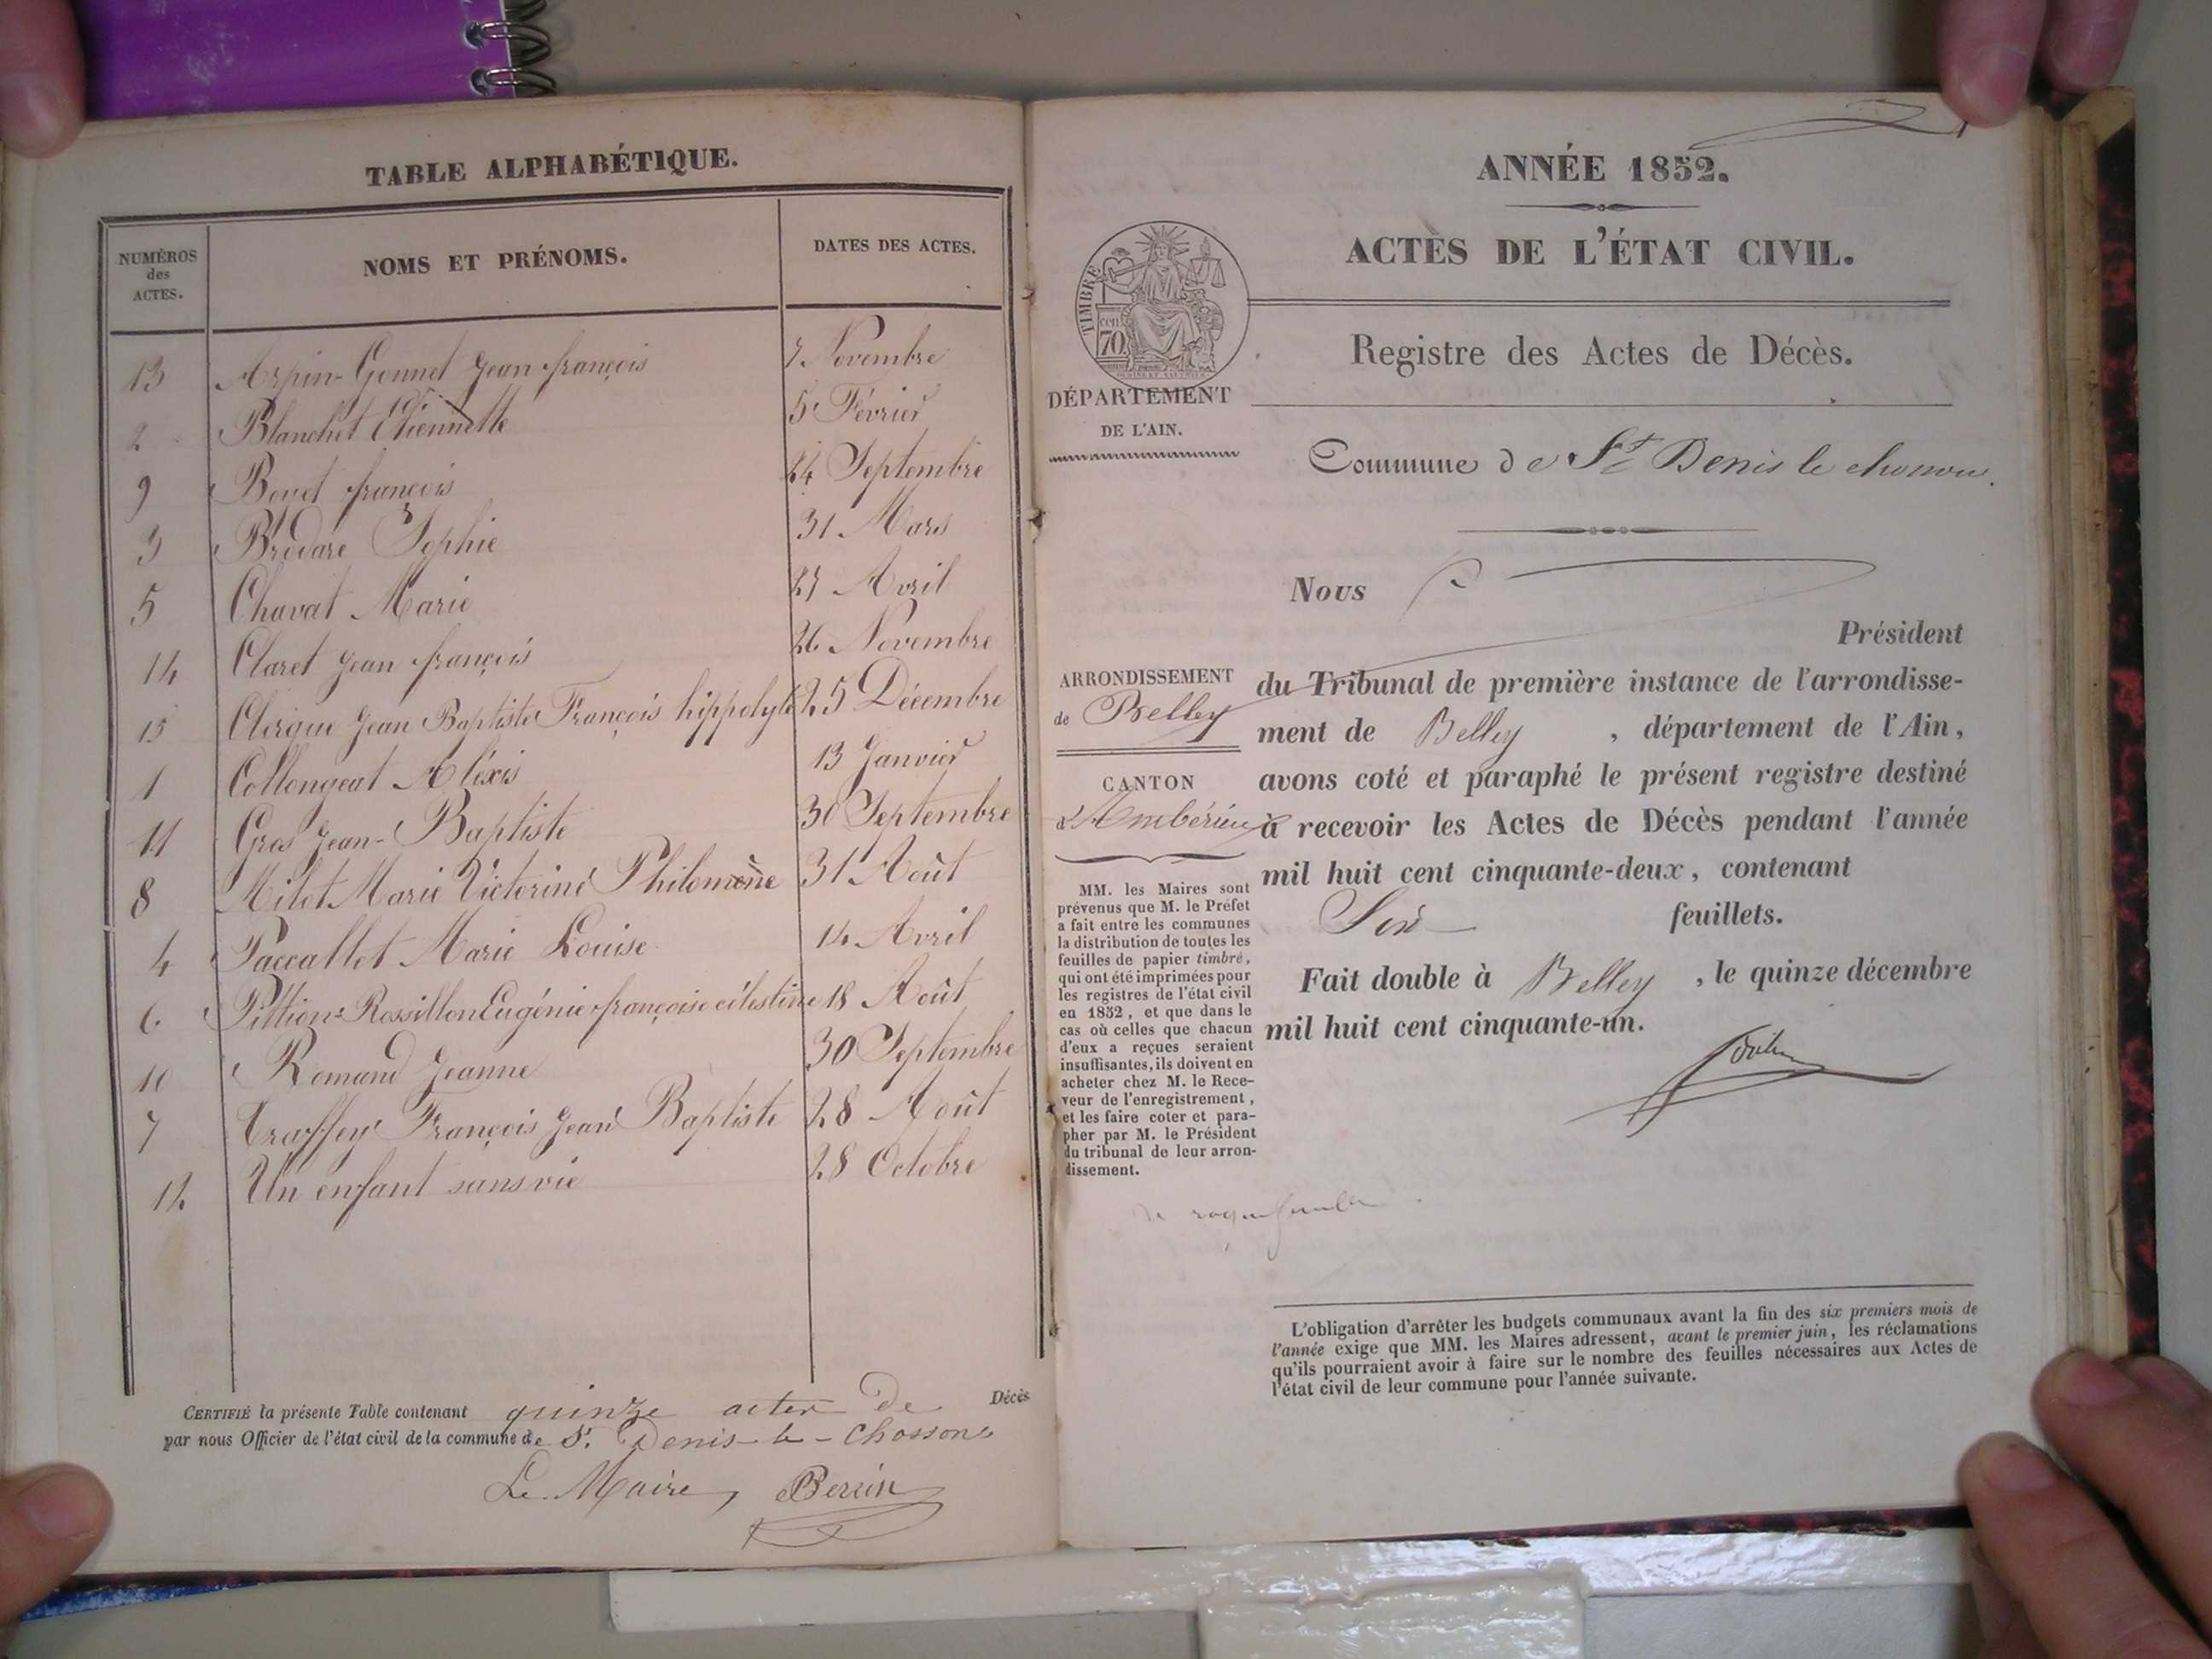 TABLE ALPHABÉTIQUE.
NUMÉROS des ACTES. NOMS ET PRÉNOMS. DATES DES ACTES.
13 Arpin-Gonnet Jean françois 7 Novembre
2 Blanchet Etiennette 5 Février
9 Bovet françois 24 Septembre
3 Brodare Sophie 31 Mars
5 Chavat Marie 27 Avril
14 Claret Jean françois 26 Novembre
15 Clergue Jean Baptiste François hippolyte 25 Décembre
1 Collongeat Aléxis 13 Janvier
11 Gros Jean-Baptiste 30 Septembre
8 Milot Marie Victorine Philomène 31 Août
4 Paccallet Marie Louise 14 Avril
6 Pittion-Rossillon Eugénie françoise célestine 18 Août
10 Romand Jeanne 30 Septembre
7 Traffey François Jean Baptiste 28 Août
12 Un enfant sans vie 28 Octobre
CERTIFIÉ la présente Table contenant quinze actes de Décès
par nous Officier de l'état civil de la commune de St. Denis-le-Chosson
Le Maire, Perrin
ANNÉE 1852.
ACTES DE L'ÉTAT CIVIL.
TIMBRE
cen.
70
Registre des Actes de Décès.
DÉPARTEMENT
DE L'AIN.
Commune de St Denis le chosson.
Nous
Président
ARRONDISSEMENT
de Belley
du Tribunal de première instance de l'arrondisse-
ment de Belley , département de l'Ain,
CANTON
d'Ambérieu
avons coté et paraphé le présent registre destiné
à recevoir les Actes de Décès pendant l'année
mil huit cent cinquante-deux, contenant
Six feuillets.
Fait double à Belley , le quinze décembre
mil huit cent cinquante-un.
MM. les Maires sont
prévenus que M. le Préfet
a fait entre les communes
la distribution de toutes les
feuilles de papier timbré,
qui ont été imprimées pour
les registres de l'état civil
en 1852, et que dans le
cas où celles que chacun
d'eux a reçues seraient
insuffisantes, ils doivent en
acheter chez M. le Rece-
veur de l'enregistrement,
et les faire coter et para-
pher par M. le Président
du tribunal de leur arron-
dissement.
L'obligation d'arrêter les budgets communaux avant la fin des six premiers mois de
l'année exige que MM. les Maires adressent, avant le premier juin, les réclamations
qu'ils pourraient avoir à faire sur le nombre des feuilles nécessaires aux Actes de
l'état civil de leur commune pour l'année suivante.